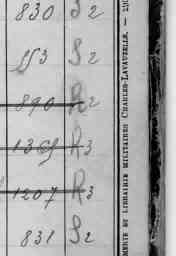 830 S2
553 S2
890 R2
1369 R3
1207 R3
831 S2
MERIE ET LIBRAIRIE MILITAIRES CHARLES-LAVAUZELLE. —